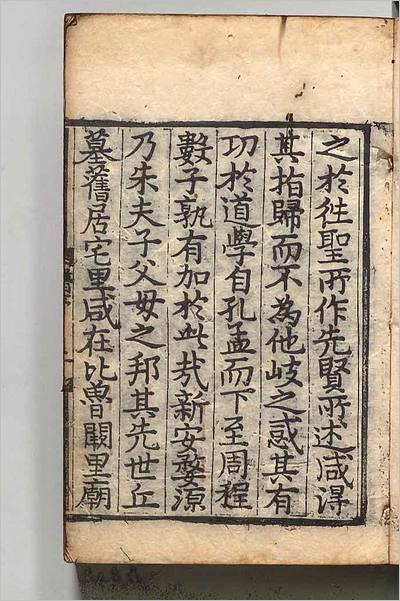 之於徃聖所作先賢所述咸淂
其指歸而不為他岐之惑其有
㓛於道學自孔孟而下至周程
數子孰有加於此㢤新安婺源
乃朱夫子父母之邦其先世丘
墓舊居宅里咸在比魯闕里廟